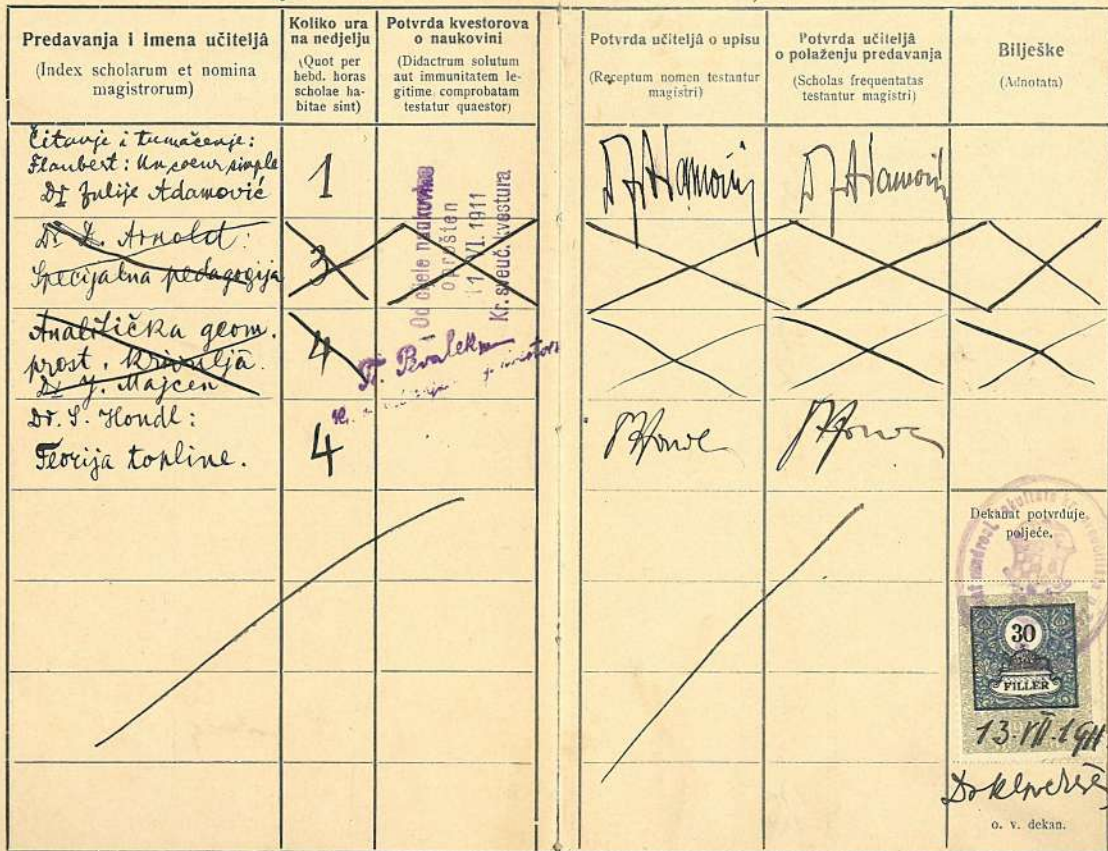 Predavanja i imena učiteljâ
(Index scholarum et nomina
magistrorum)
Koliko ura
na nedjelju
(Quot per
hebd. horas
scholae ha-
bitae sint)
Potvrda kvestorova
o naukovini
(Didactrum solutum
aut immunitatem le-
gitime comprobatam
testatur quaestor)
Potvrda učiteljâ o upisu
(Receptum nomen testantur
magistri)
Potvrda učiteljâ
o polaženju predavanja
(Scholas frequentatas
testantur magistri)
Bilješke
(Adnotata)
Čitanje i tumačenje:
Flaubert: Un coeur simple
Dr Julije Adamović
1
Dr. Đ. Arnold:
Specijalna pedagogija
3
Analitička geom.
prost. krivulja.
Dr J. Majcen
4
Dr. S. Hondl:
Teorija topline.
4
Od cijele naukovine
oprošten
VI. 1911
Kr. sveuč. kvestura
Dekanat potvrđuje
poljeće.
30
FILLER
13. VII. 1911
o. v. dekan.